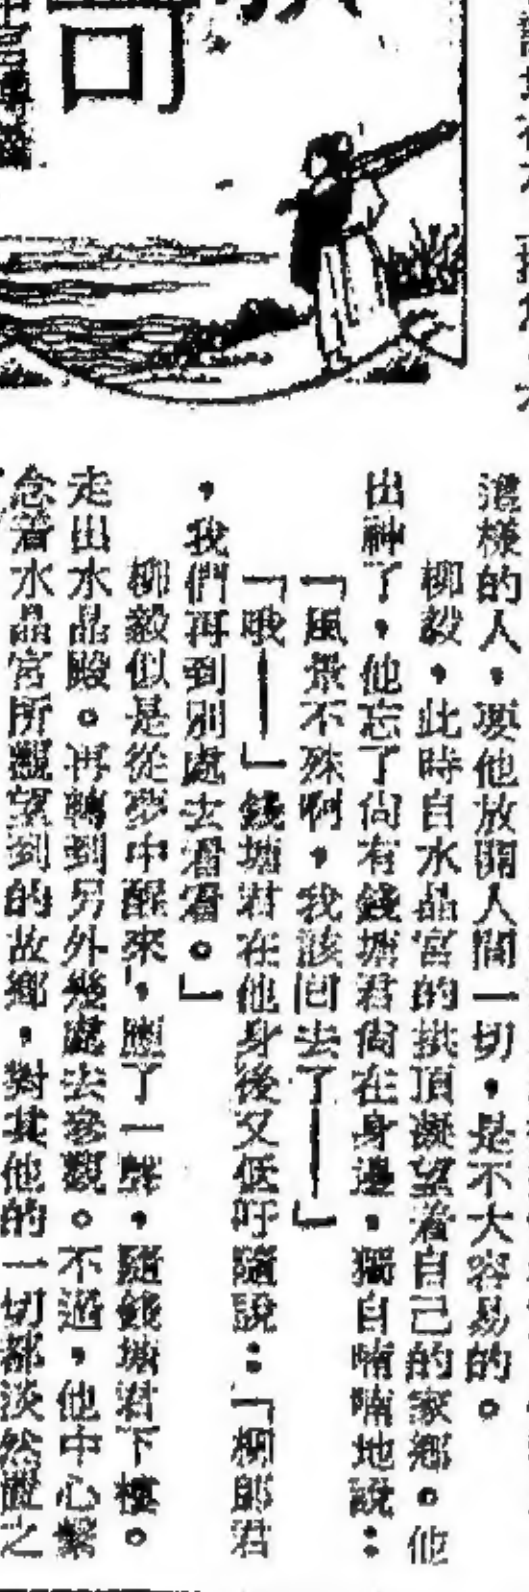 這樣的人，要他放開人間一切，是不大容易的。
柳毅，此時自水晶宮的拱頂凝望着自己的家鄉。他
出神了，他忘了尙有錢塘君尙在身邊，獨自喃喃地說：
「風景不殊啊，我該回去了——」
「哦——」錢塘君在他身後又低吁隨說：「柳郎君
，我們再到別處去看看。」
柳毅似是從夢中醒來，應了一聲，隨錢塘君下樓。
走出水晶殿。再轉到另外幾處去參觀。不過，他中心繫
念着水晶宮所觀望到的故鄉，對其他的一切都淡然置之